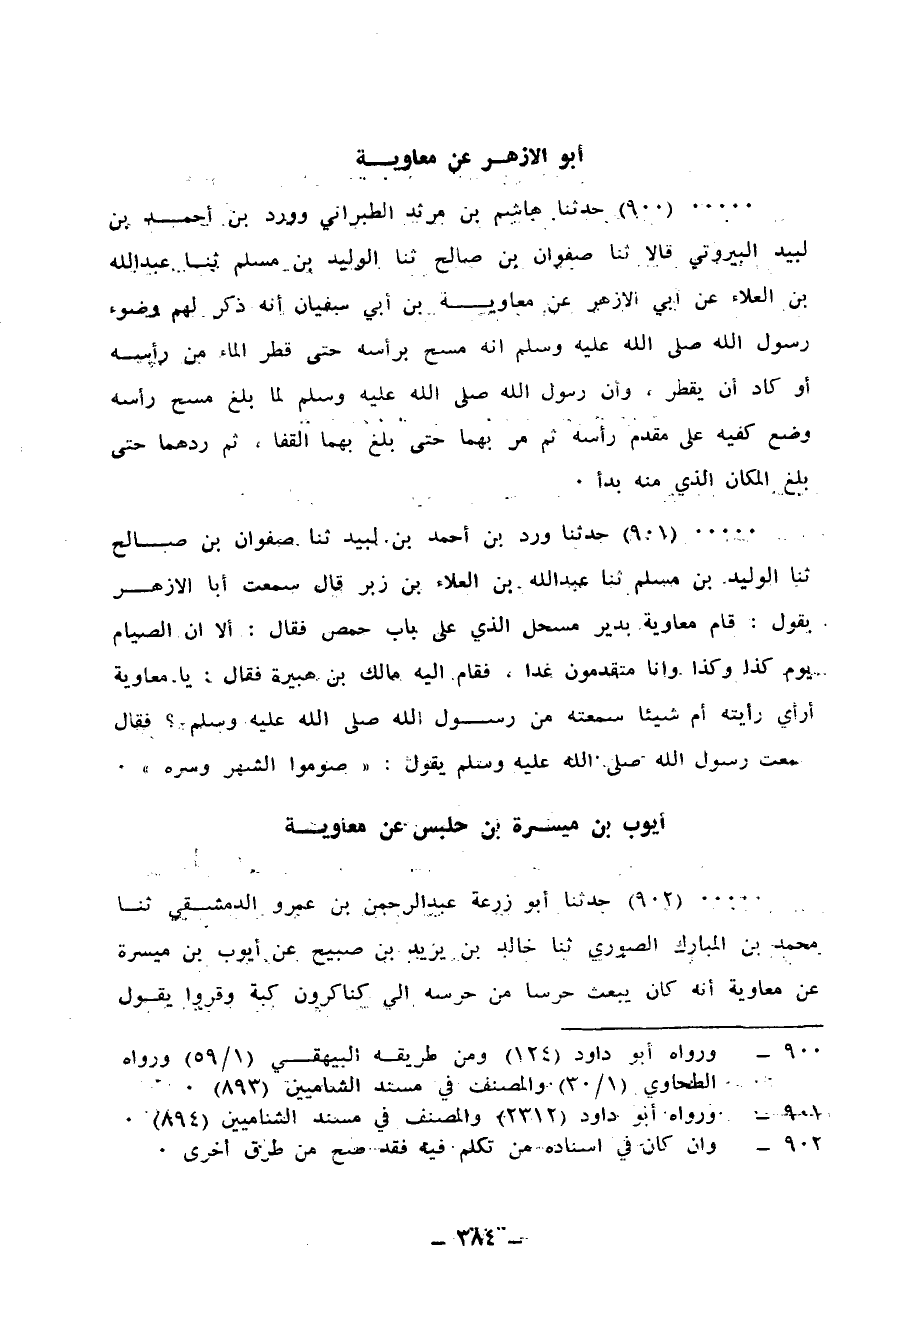 أبو الازهر عن معاوية
..... (٩٠٠) حدثنا هاشم بن مرثد الطبراني وورد بن أحمد بن
لبيد البيروتي قالا ثنا صفوان بن صالح ثنا الوليد بن مسلم ثنا عبدالله
بن العلاء عن أبي الازهر عن معاوية بن أبي سفيان أنه ذكر لهم وضوء
رسول الله صلى الله عليه وسلم انه مسح برأسه حتى قطر الماء من رأسه
أو كاد أن يقطر ، وأن رسول الله صلى الله عليه وسلم لما بلغ مسح رأسه
وضع كفيه على مقدم رأسه ثم مر بهما حتى بلغ بهما القفا ، ثم ردهما حتى
بلغ المكان الذي منه بدأ .
..... (٩٠١) حدثنا ورد بن أحمد بن لبيد ثنا صفوان بن صالح
ثنا الوليد بن مسلم ثنا عبدالله بن العلاء بن زبر قال سمعت أبا الازهر
يقول : قام معاوية بدير مسحل الذي على باب حمص فقال : ألا ان الصيام
يوم كذا وكذا وانا متقدمون غدا ، فقام اليه مالك بن هبيرة فقال : يا معاوية
أرأي رأيته أم شيئا سمعته من رسول الله صلى الله عليه وسلم ؟ فقال
سمعت رسول الله صلى الله عليه وسلم يقول : « صوموا الشهر وسره » .
أيوب بن ميسرة بن حلبس عن معاوية
..... (٩٠٢) حدثنا أبو زرعة عبدالرحمن بن عمرو الدمشقي ثنا
محمد بن المبارك الصوري ثنا خالد بن يزيد بن صبيح عن أيوب بن ميسرة
عن معاوية أنه كان يبعث حرسا من حرسه الي كناكرون كبة وقروا يقول
٩٠٠ – ورواه أبو داود (١٢٤) ومن طريقه البيهقي (٥٩/١) ورواه
الطحاوي (٣٠/١) والمصنف في مسند الشاميين (٨٩٣) .
٩٠١ – ورواه أبو داود (٢٣١٢) والمصنف في مسند الشاميين (٨٩٤) .
٩٠٢ – وان كان في اسناده من تكلم فيه فقد صح من طرق أخرى .
– ٣٨٤ –